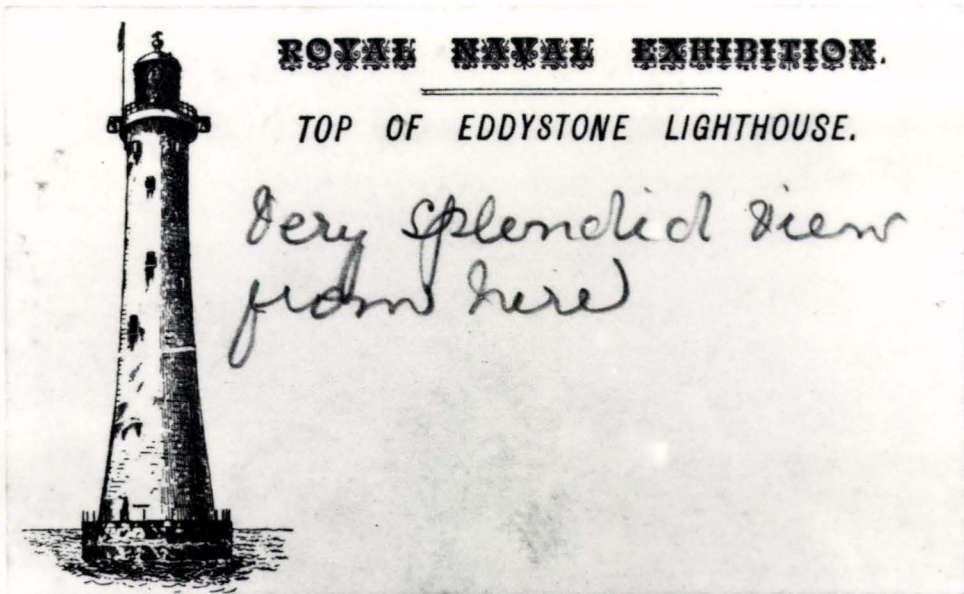 ROYAL NAVAL EXHIBITION.
TOP OF EDDYSTONE LIGHTHOUSE.
Very splendid view
from here